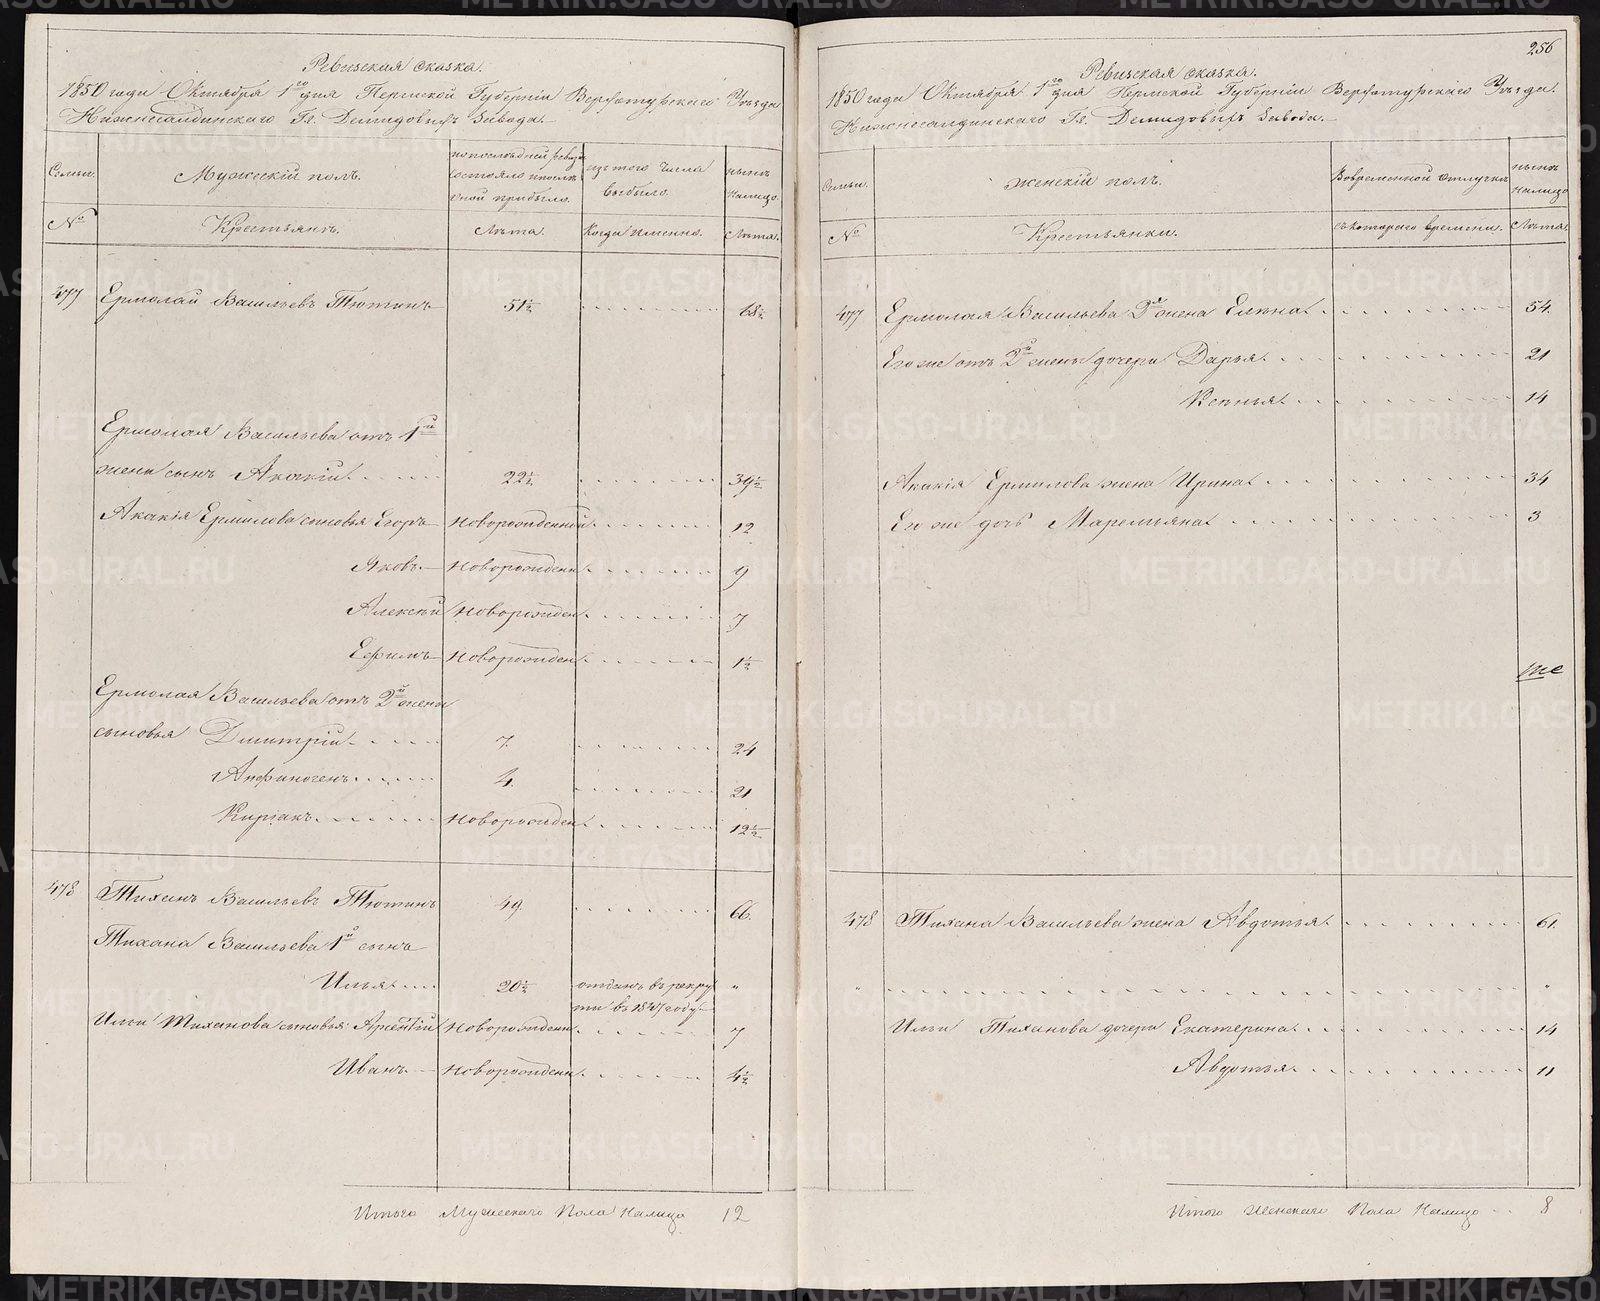 Ревизская сказка.
1850 года Октября 1го дня Пермской Губернiи Верхотурскаго Уѣзда
Нижнесалдинскаго Гг. Демидовыхъ Завода.
Семьи.
Мужескiй полъ.
по послѣдней ревизiи
состояло и послѣ
оной прибыло.
изъ того числа
выбыло.
нынѣ
налицо.
№
Крестьянъ.
Лѣта.
Когда именно.
Лѣта.
477 Ермолай Васильевъ Тютинъ 51½ 68½
Ермолая Васильева отъ 1й
жены сынъ Акакiй 22½ 39½
Акакiя Ермилова сыновья Егоръ Новорожденный 12
Яковъ Новорожденн 9
Алексѣй Новорожден 7
Ефимъ Новорожден 1½
Ермолая Васильева отъ 2й жены
сыновья Дмитрiй 7. 24
Анфиногенъ 4. 21
Кирiакъ Новорожден 12½
478 Тиханъ Васильевъ Тютинъ 49. 66.
Тихана Васильева 1й сынъ
Илья 20½ отданъ въ рекру "
ты въ 1847 году
Ильи Тиханова сыновья Арентiй Новорожденн 7
Иванъ Новорожденн 4½
Итого Мужескаго Пола Налицо 12
256
Ревизская сказка.
1850 года Октября 1го дня Пермской Губернiи Верхотурскаго Уѣзда
Нижнесалдинскаго Гг. Демидовыхъ Завода.
Семьи.
Женскiй полъ.
Вовременной отлучкѣ
нынѣ
налицо
№
Крестьянки.
съ котораго времени.
Лѣта.
477 Ермолая Васильева 2й жена Елена 54.
Его же отъ 2й жены дочери Дарья 21
Ксенья 14
Акакiя Ермилова жена Ирина 34
Его же дочь Маремьяна 3
478 Тихана Васильева жена Авдотья 61.
" "
Ильи Тиханова дочери Екатерина 14
Авдотья 11
Итого Женскаго Пола Налицо 8